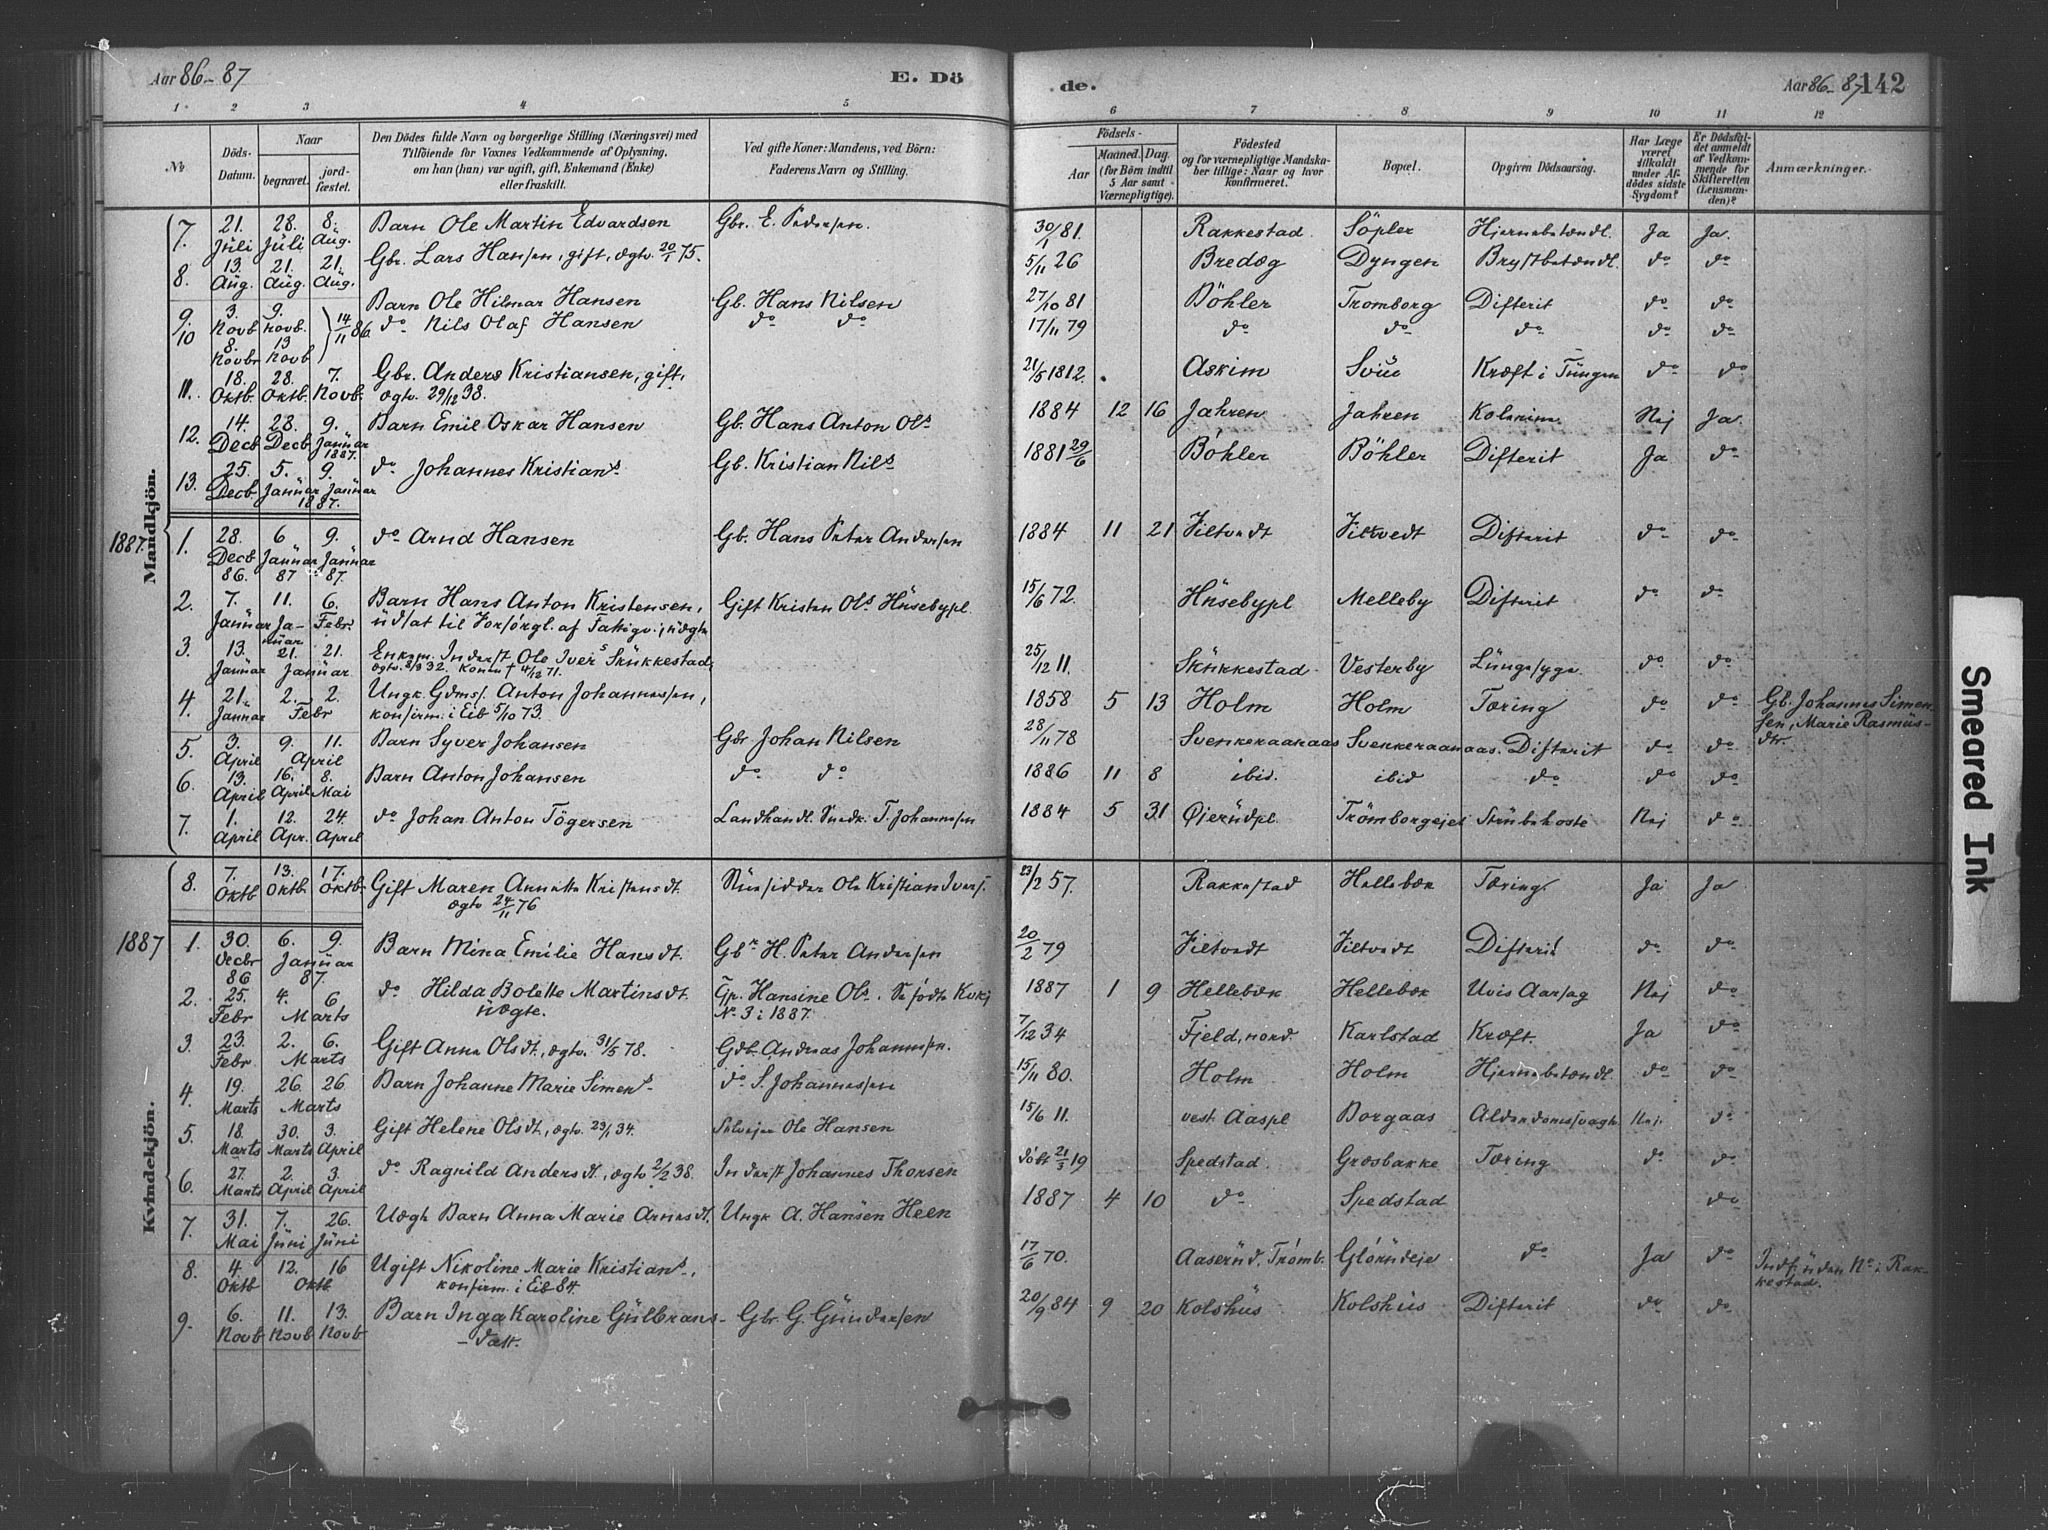 Aar 86-87
E. Dö
1 2 3 4 5
No
Döds-
Datum.
Naar
begravet.
jord-
fæstet.
Den Dödes fulde Navn og borgerlige Stilling (Næringsvei) med
Tilföiende for Voxnes Vedkommende af Oplysning,
om han (hun) var ugift, gift, Enkemand (Enke)
eller fraskilt.
Ved gifte Koner: Mandens, ved Börn:
Faderens Navn og Stilling.
Mandkjön.
7. 21. Juli 28. Juli 8. Aug. Barn Ole Martin Edvardsen Gbr. E. Pedersen.
8. 13. Aug. 21. Aug. 21. Aug. Gbr. Lars Hansen, gift, ægtv. 20/1 75.
9. 3. Novb. 9. Novb. Barn Ole Hilmar Hansen Gb. Hans Nilsen
14/11 86.
10 8. Novbr 13 Novb do Nils Olaf Hansen do do
11. 18. Oktb 28. Oktb. 7. Novb. Gbr. Anders Kristiansen, gift,
ægtv. 29/12 38.
12. 14. Decb 28. Decb. 9. Januar 1887. Barn Emil Oskar Hansen Gb. Hans Anton Ols
13. 25. Decb. 5. Januar 9. Januar 1887. do Johannes Kristians. Gb. Kristian Nils
1887.
1. 28. Decb 86. 6 Januar 87 9. Januar 87. do Arnd Hansen Gb. Hans Peter Andersen
2. 7. Januar 11. Januar 6. Febr. Barn Hans Anton Kristensen, Gift Kristen Ols Husebypl
udsat til Forsørgl. af Fattigv.; uægte
3. 13. Januar 21. 21. Januar Enkem. Inderst Ole Ivers Skukkestad,
ægtv. 8/3 32. Konen † 4/12 71.
4. 21. Januar 2. 2. Febr Ungk. Gdms. Anton Johannessen,
konfirm. i Eib 5/10 73.
5. 3. April 9. 11. April Barn Syver Johansen Gbr Johan Nilsen
6. 13. April 16. April 8. Mai Barn Anton Johansen do do
7. 1. April 12. Apr. 24. April do Johan Anton Tögersen Landhandl. Snedk. T. Johannesen
Kvindekjön.
8. 7. Oktb 13. Oktb. 17. Oktb. Gift Maren Annette Kristensdt. Huusidder Ole Kristian Ivers.
ægtv 24/11 76
1887
1. 30. Decbr 86 6. 9. Januar 87. Barn Mina Emilie Hansdt. Gbr H. Peter Andersen
2. 25. Febr 4. 6 Marts do Hilda Bolette Martinsdt. Gp. Hansine Ols. Se fødte Kvkj
uægte. No 3 i 1887.
3. 23. Febr 2. 6. Marts Gift Anna Olsdt., ægtv. 31/5 78. Gdb. Andreas Johannesen.
4. 19. Marts 26. 26. Marts Barn Johanne Marie Simens. do S. Johannesen
5. 18. Marts 30. Marts 3. April Gift Helene Olsdt., ægtv. 23/1 34. Selveier Ole Hansen
6. 27. Marts 2. April 3. April do Ragnild Andersdt., ægtv 2/2 38. Inderst Johannes Thorsen
7. 31. Mai 7. Juni 26. Juni Uægte Barn Anna Marie Arnesdt. Ungk A. Hansen Heen
8. 4. Oktb 12. 16 Oktb. Ugift Nikoline Marie Kristians.,
konfirm. i Eib 84.
9. 6. Novb 11. Novb 13. Novb Barn Inga Karoline Gulbrans- Gbr. G. Gundersen
-datt.
de.
Aar 86-87 142
6 7 8 9 10 11 12
Födsels-
Aar
Maaned. Dag.
(for Börn indtil
5 Aar samt
Værnepligtige).
Födested
og for værnepligtige Mandska-
ber tillige: Naar og hvor
konfirmeret.
Bopæl.
Opgiven Dödsaarsag.
Har Læge
været
tilkaldt
under Af-
dödes sidste
Sygdom?
Er Dödsfal-
det anmeldt
af Vedkom-
mende for
Skifteretten
(Lensman-
den)?
Anmærkninger.
30/1 81. Rakkestad Söpler Hjernebetændl. Ja Ja.
5/11 26 Bredæg Dyngen Brystbetændl. do do
27/10 81 Böhler Tromborg Difterit do do
17/11 79 do do do do do
21/5 1812. Askim Kræft i Tungen do do
1884 12 16 Jahren Jahren Kolerine Nej Ja.
1881 29/6 Böhler Böhler Difterit Ja do
1884 11 21 Filtvedt Filtvedt Difterit do do
15/6 72. Husebypl Melleby Difterit do do
25/12 11. Skukkestad Vesterby Lungesyge do do
1858 5 13 Holm Holm Tæring do do Gb. Johannes Simen-
sen, Marie Rasmus-
dtr.
28/11 78 Svenkeraanaas Svenkeraanaas. Difterit do do
1886 11 8 ibid. ibid do do do
1884 5 31 Øierudpl. Trömborgejet Strubehoste Nej do
23/2 57. Rakkestad Hellebæk Tæring. Ja Ja
20/2 79 Filtvedt Filtvedt Difterit do do
1887 1 9 Hellebæk Hellebæk Uvis Aarsag Nej do
7/12 34 Fjeld, nord. Karlstad Kræft. Ja do
15/11 80. Holm Holm Hjernebetændl. do do
15/6 11. vest. Aaspl Borgaas Alderdomssvagh. Nej. do
döbt 21/3 19 Spedstad. Græsbakke Tæring do do
1887 4 10 do Spedstad do
17/6 70. Aaserud. Trömb. Glörudeje do Ja do Indf. uden No i Rak-
kestad.
20/9 84 9 20 Kolshus Kolshus Difterit do do
Smeared Ink